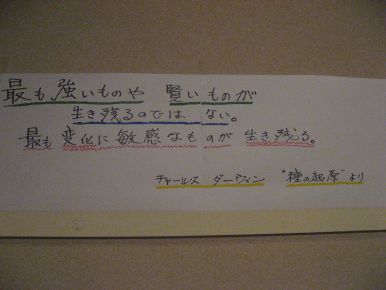 最も強いものや 賢いものが
生き残るのでは ない。
最も変化に敏感なものが 生き残る。
チャールス ダーウィン "種の起原"より